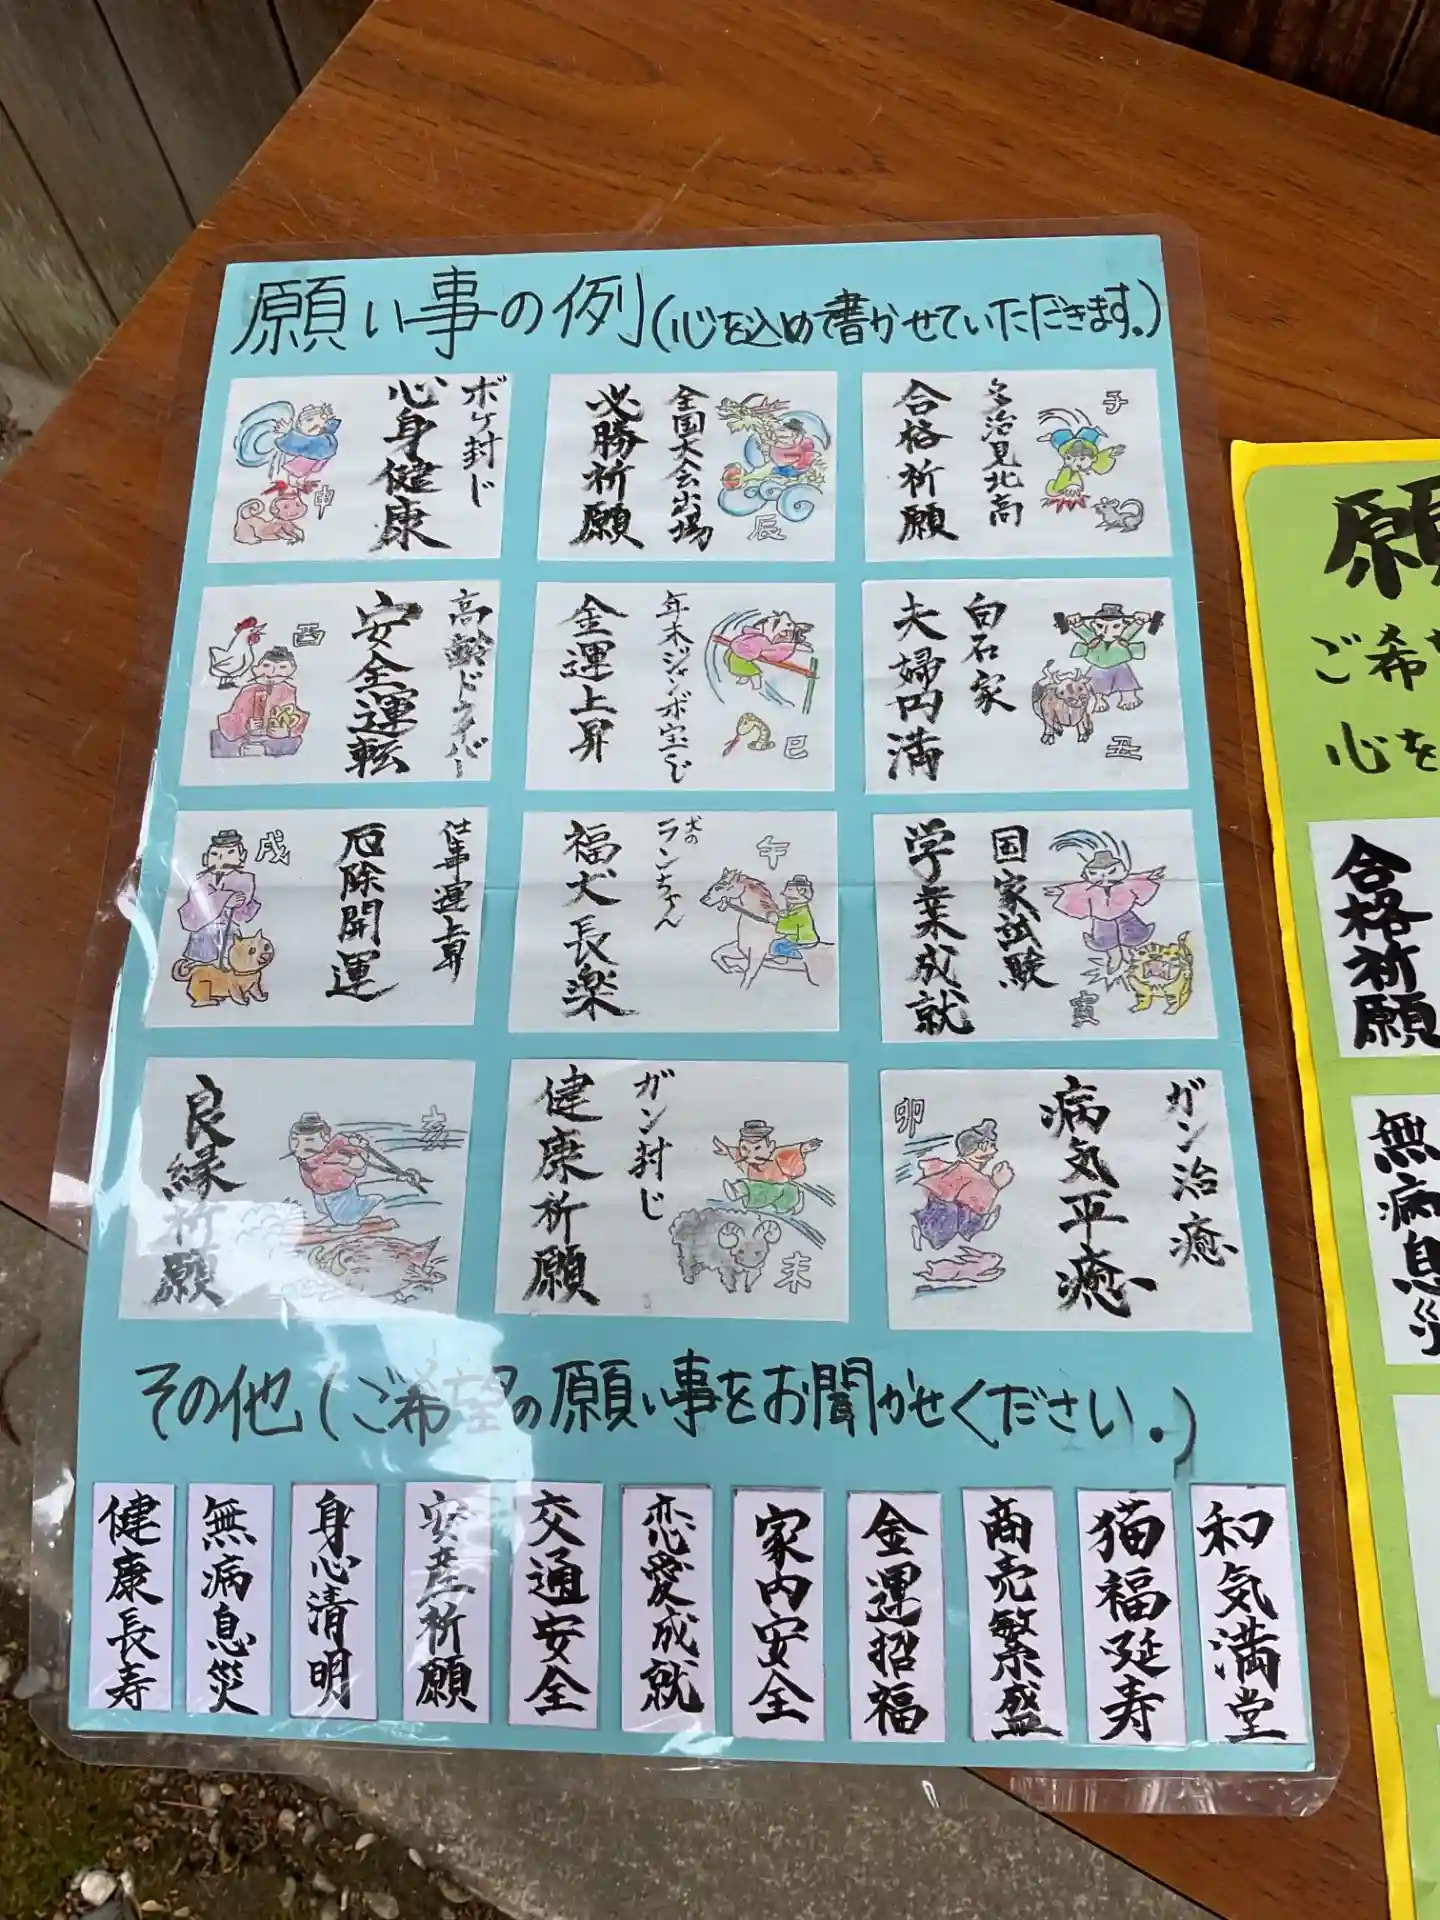 願い事の例(心を込めて書かせていただきます。)
子
多治見北高
合格祈願
全国大会出場
必勝祈願
辰
ボケ封じ
心身健康
申
丑
白石家
夫婦円満
年末ジャンボ宝くじ
金運上昇
巳
高齢ドライバー
安全運転
酉
国家試験
学業成就
寅
午
犬のランちゃん
福犬長楽
仕事運上昇
厄除開運
戌
ガン治癒
病気平癒
卯
ガン封じ
健康祈願
未
亥
良縁祈願
その他(ご希望の願い事をお聞かせください。)
和気満堂
猫福延寿
商売繁盛
金運招福
家内安全
恋愛成就
交通安全
安産祈願
身心清明
無病息災
健康長寿
願
ご希
心を
合格祈願
無病息災